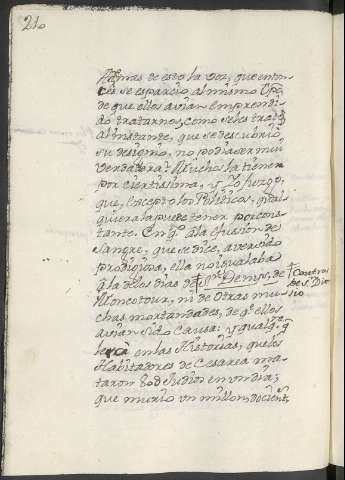 210
Ademas de esto la voz, que enton-
ces se esparcio al mismo tpo,
de que ellos avian emprendi-
do tratarnos, como seles trató
al instante, que se descubrio
su designio, no podia ser mui
verdadera: Muchos la tienen
por ciertissima, y Yo juzgo,
que, excepto los Politicos, qual
quiera la puede tener por cons-
tante. En qto. a la efusion de
sangre, que se dice, aver sido
prodigiosa, ella no igualaba
a la de los dias de † Sn. Denys, de
† Contras
de S. Dio
nisio
Moncotour, ni de otras mu-
chas mortandades, de qe. ellos
avian sido causa: y qualqa. q
lea en las Historias, que los
Habitadores de Cesarea ma-
taron 80 d Judios en un dia;
que murio un millon, docient